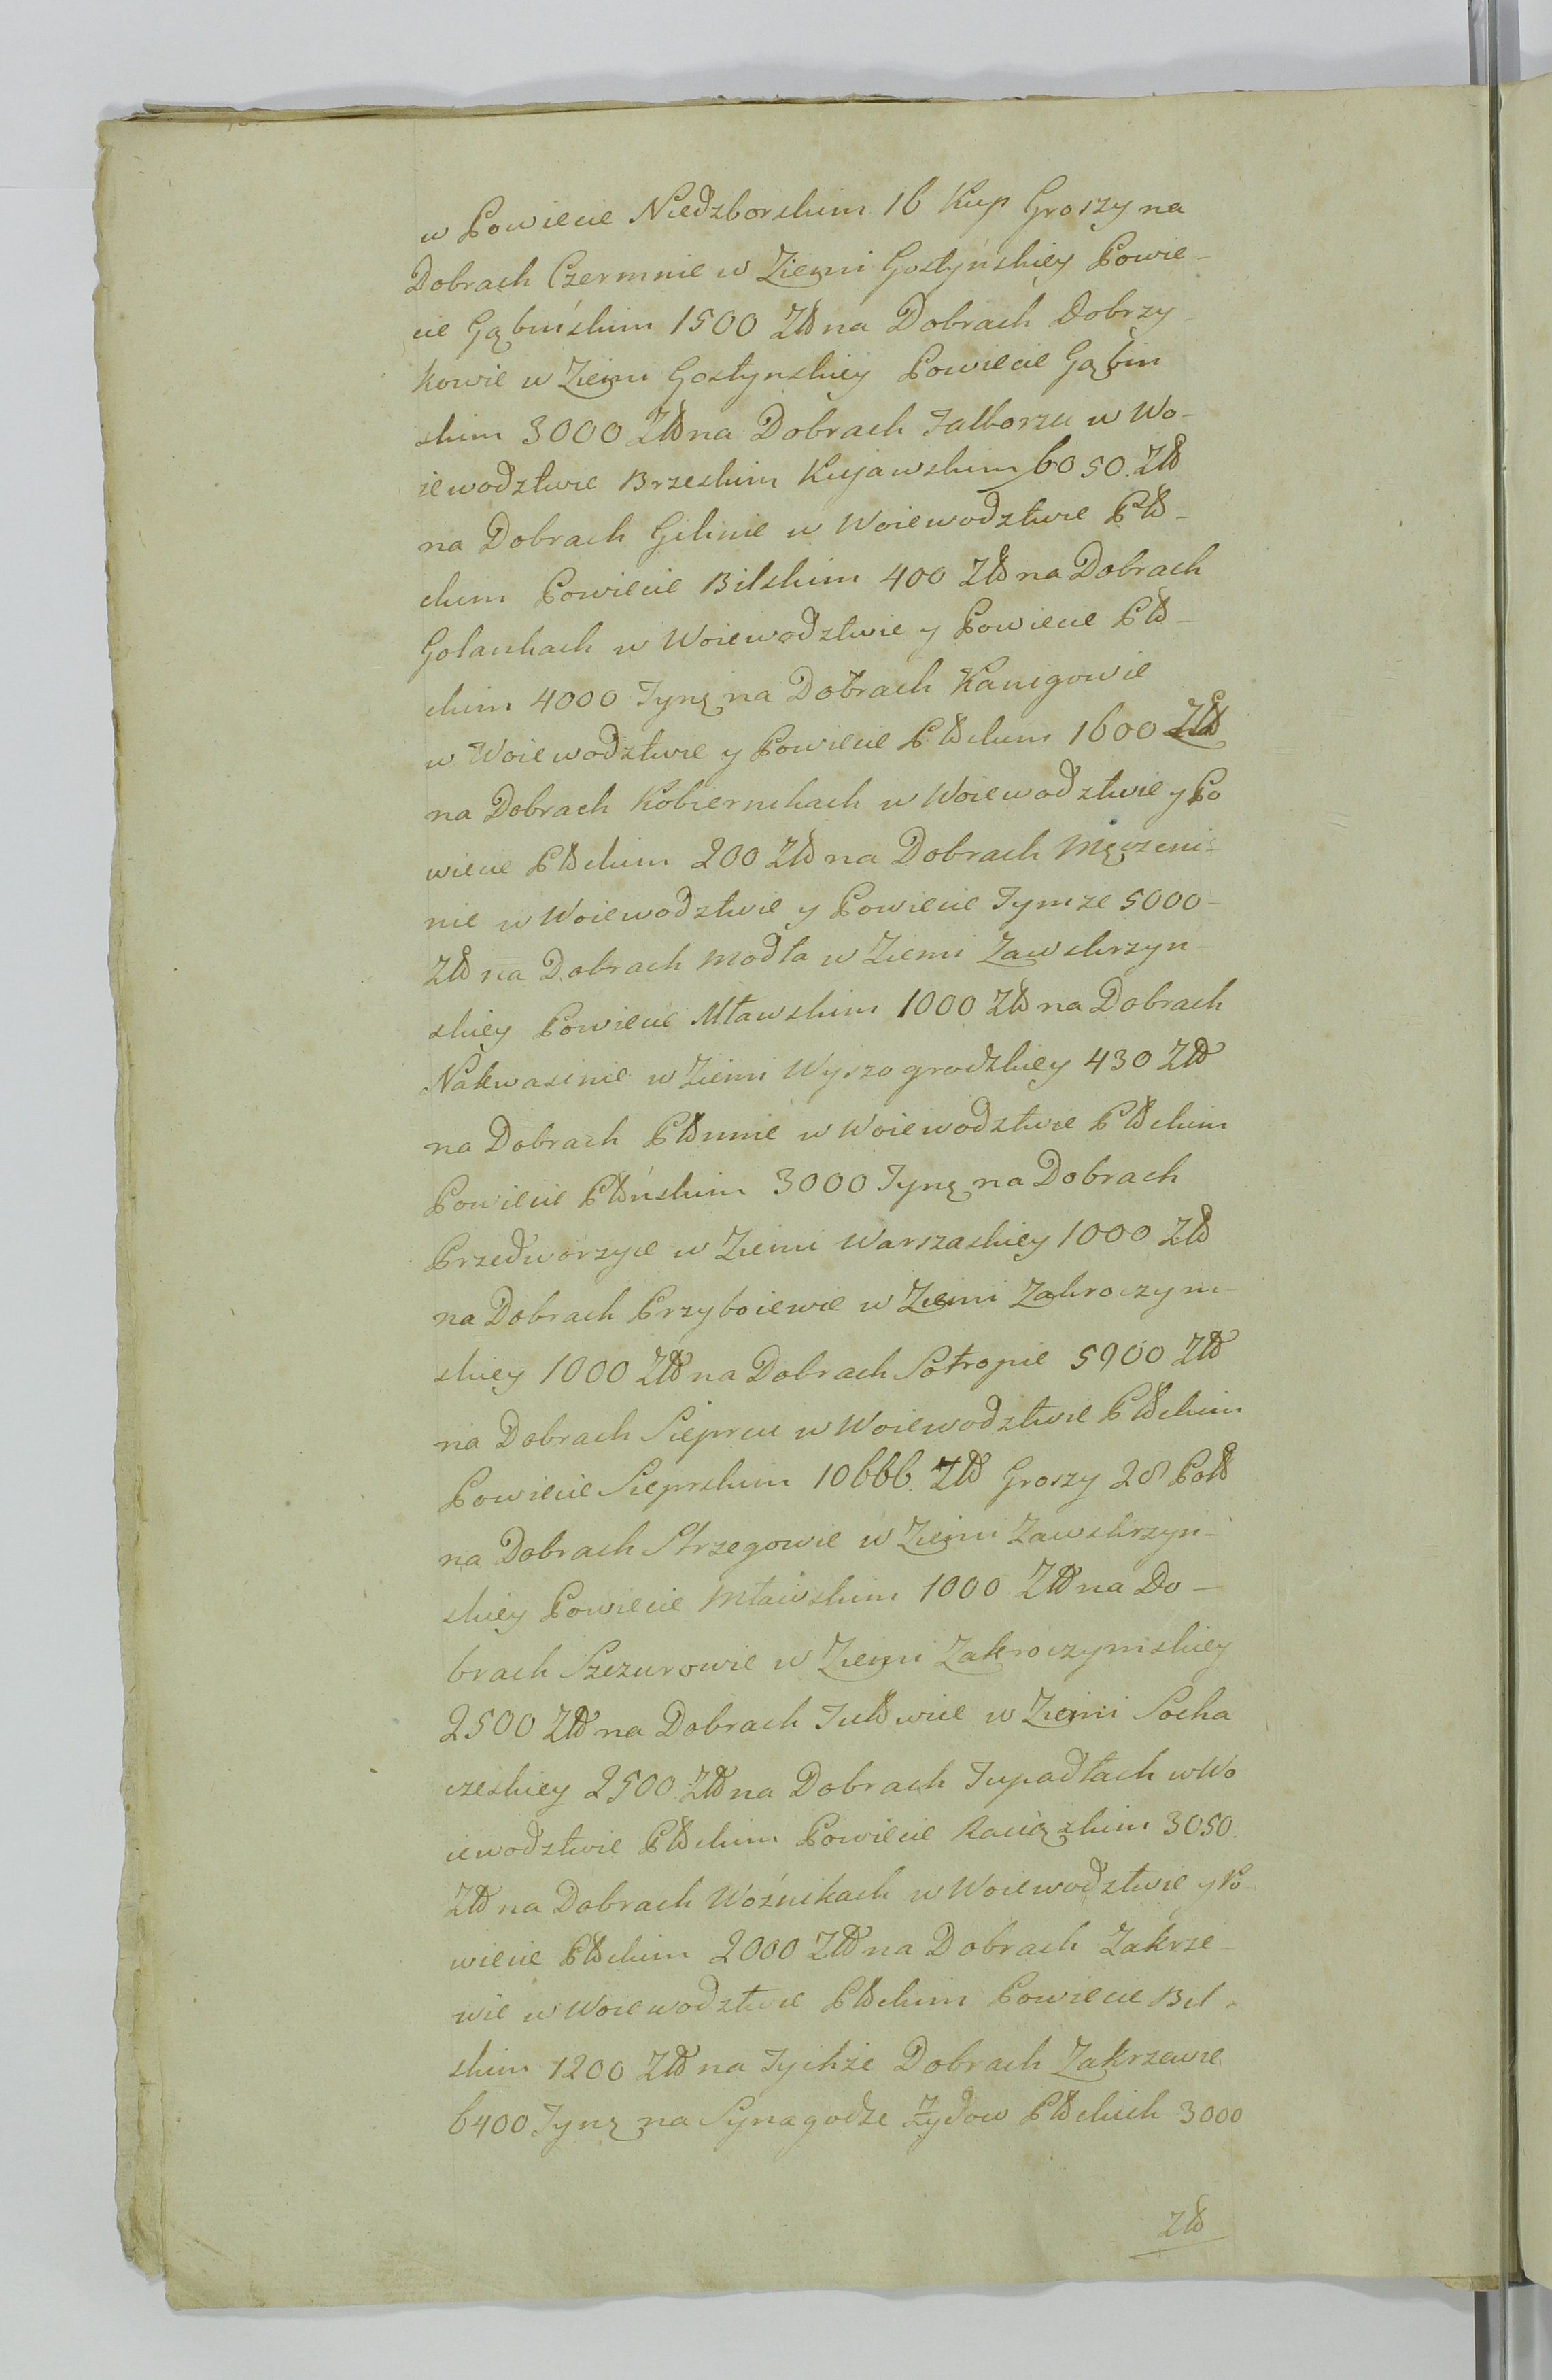 w Powiecie Niedzborskim 16 Kup Groszy na
Dobrach Czermnie w Ziemi Gostyńskiey Powie-
cie Gąbińskim 1500 Zło na Dobrach Dobrzy-
kowie w Ziemi Gostynskiey Powiecie Gąbin
skim 3000 Zło na Dobrach Falborzu w Wo-
iewodztwie Brzeskim Kujawskim 6050. Zło
na Dobrach Gilinie w Woiewodztwie Pło-
ckim Powiecie Bilskim 400 Zło na Dobrach
Golankach w Woiewodztwie y Powiecie Pło-
ckim 4000 Tynę na Dobrach Kanigowie
w Woiewodztwie y Powiecie Płockim 1600 Zło
na Dobrach Kobiernikach w Woiewodztwie y Po
wiecie Płockim 200 Zło na Dobrach Męczeni-
nie w Woiewodztwie y Powiecie Tymze 5000-
Zło na Dobrach Modła w Ziemi Zawskrzyn-
skiey Powiecie Mławskim 1000 Zło na Dobrach
Nakwasinie w Ziemi Wyszogrodzkiey 430 Zło
na Dobrach Płonnie w Woiewodztwie Płockim
Powiecie Płońskim 3000 Tynę na Dobrach
Przedworzyce w Ziemi Warszaskiey 1000 Zło
na Dobrach Przyboiewie w Ziemi Zakroczym-
skiey 1000 Zło na Dobrach Potropie 5900 Zło
na Dobrach Sieprcu w Woiewodztwie Płockim
Powiecie Sieprskim 10666. Zło Groszy 28 Poło
na Dobrach Strzegowie w Ziemi Zawskrzyn-
skiey Powiecie Mławskim 1000 Zło na Do-
brach Szczurowie w Ziemi Zakroczymskiey
2500 Zło na Dobrach Tułowice w Ziemi Socha
czeskiey 2500 Zło na Dobrach Tupadłach w Wo
iewodztwie Płockim Powiecie Raciązkim 3050.
Zło na Dobrach Woźnikach w Woiewodztwie y Po-
wiecie Płockim 2000 Zło na Dobrach Zakrze-
wie w Woiewodztwie Płockim Powiecie Bil-
skim 1200 Zło na Tychże Dobrach Zakrzewie
6400 Tynę na Synagodze Zydow Płockich 3000
Zło